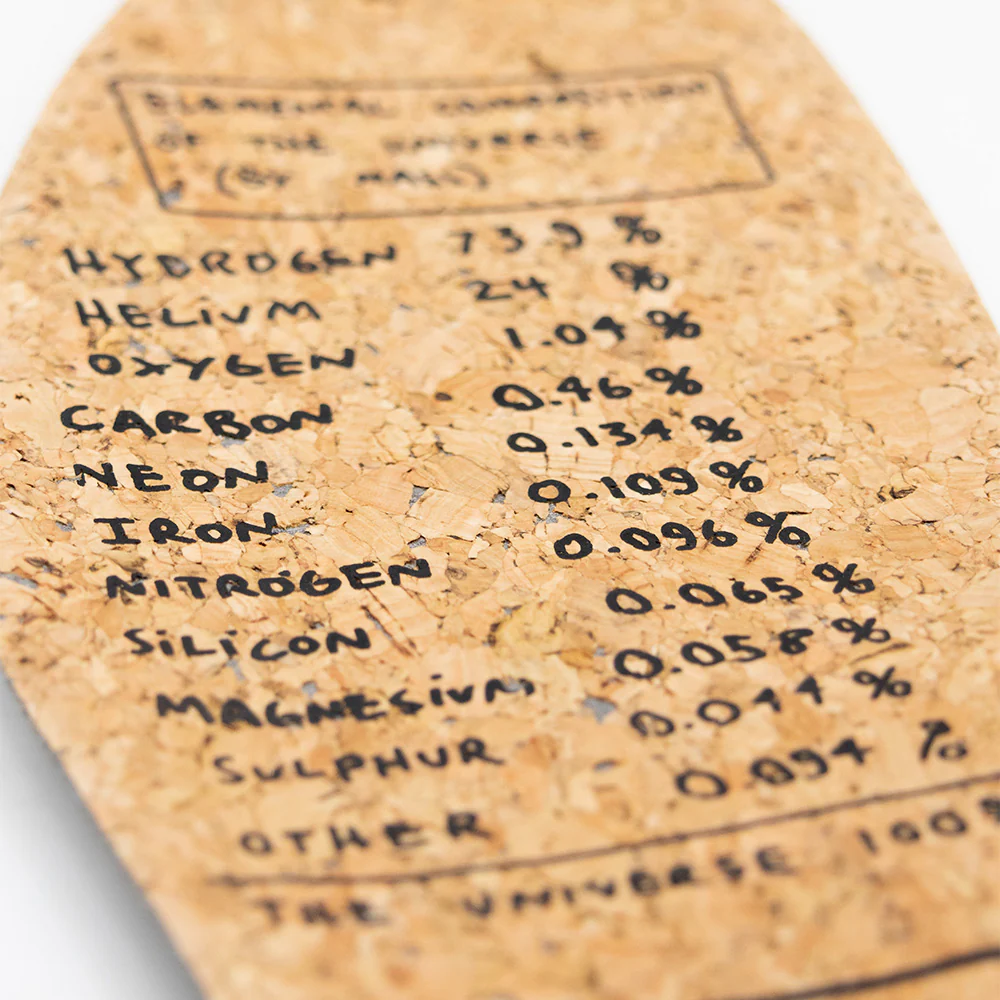 ELEMENTAL COMPOSITION
OF THE UNIVERSE
(BY MASS)
HYDROGEN 73.9 %
HELIUM 24 %
OXYGEN 1.04 %
CARBON 0.46 %
NEON 0.134 %
IRON 0.109 %
NITROGEN 0.096 %
SILICON 0.065 %
MAGNESIUM 0.058 %
SULPHUR 0.044 %
OTHER 0.094 %
THE UNIVERSE 100%